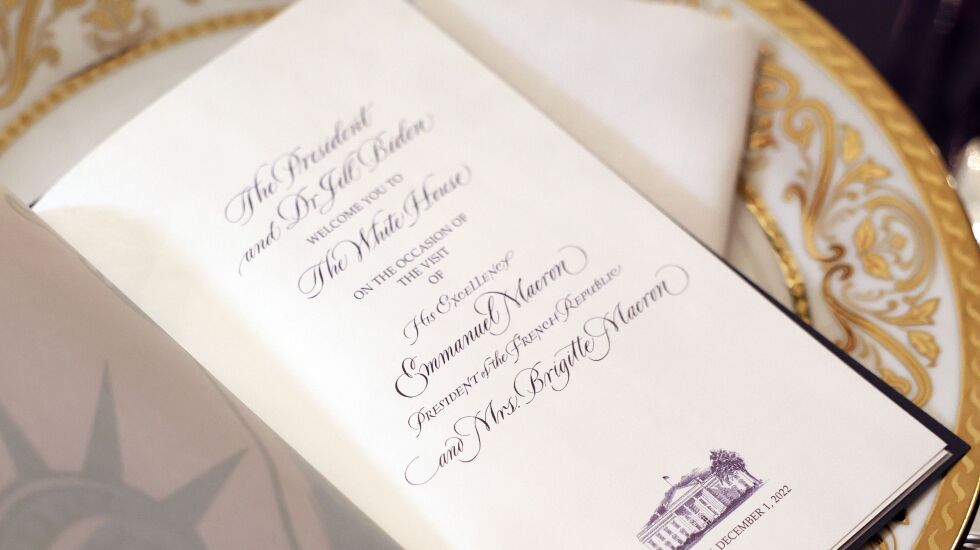 The President
and Dr. Jill Biden
WELCOME YOU TO
The White House
ON THE OCCASION OF
THE VISIT
OF
His Excellency
Emmanuel Macron
President of the French Republic
and Mrs. Brigitte Macron
DECEMBER 1, 2022